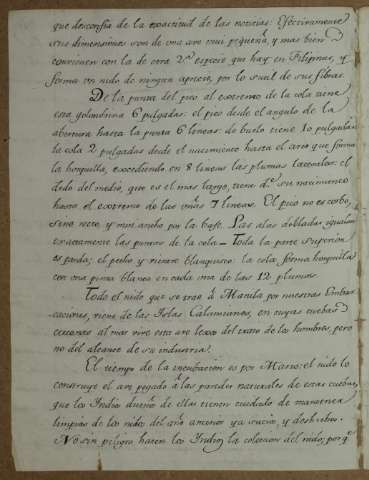 que desconfia de la exactitud de las noticias. Efectivamente
sus dimensiones son de una ave mui pequeña, y mas bien
convienen con la de otra 2.ª especie que hay en Filipinas, y
forma un nido de ningun aprecio, por lo qual de sus fibras.
De la punta del pico al extremo de la cola tiene
esta golondrina 6 pulgadas: el pico desde el angulo de la
abertura hasta la punta 6 lineas: de buelo tiene 10 pulgadas
la cola 2 pulgadas desde el nacimiento hasta el arco que forma
la horquilla, excediendo en 8 lineas las plumas laterales: el
dedo del medio, que es el mas largo, tiene d.e su nacimiento
hasta el extremo de las uñas 7 lineas. El pico no es corbo,
sino recto, y mui ancho por la base. Las alas dobladas igualan
exactamente las puntas de la cola — Toda la parte superior
es parda; el pecho y vientre blanquisco: la cola forma horquilla
con una pinta blanca en cada una de las 12 plumas.
Todo el nido que se trae à Manila por nuestras Embar
caciones, viene de las Islas Calamianes, en cuyas cuebas
cercanas al mar vive esta ave lexos del trato de los hombres, pero
no del alcance de su industria.
El tiempo de la incubacion es por Marzo: el nido lo
construye el ave pegado à las paredes naturales de estas cuebas,
que los Indios dueños de ellas tienen cuidado de mantener
limpias de los nidos del año anterior ya vacios, y deshechos.
No sin peligro hacen los Indios la coleccion del nido; por q.e